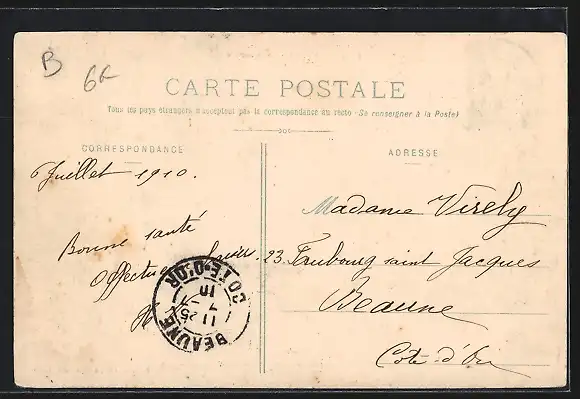 B
6f
CARTE POSTALE
Tous les pays étrangers n'acceptent pas la correspondance au recto - (Se renseigner à la Poste)
CORRESPONDANCE
6 Juillet 1910.
Bonne santé
ADRESSE
Madame Virely
23. Faubourg saint Jacques
Beaune
Côte-d'Or
BEAUNE
CÔTE-D'OR
11 25
7
10